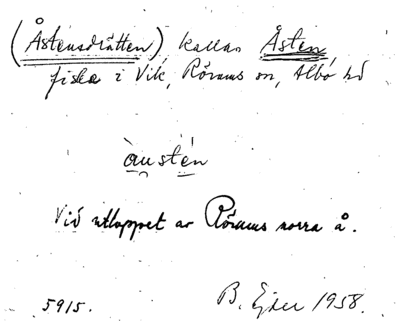 (Åstensdrätten) kallas Åsten
fiske i Vik, Rörums sn, Albo hd
àustén
Vid utloppet av Rörums norra å.
B. Ejder 1958.
5915.